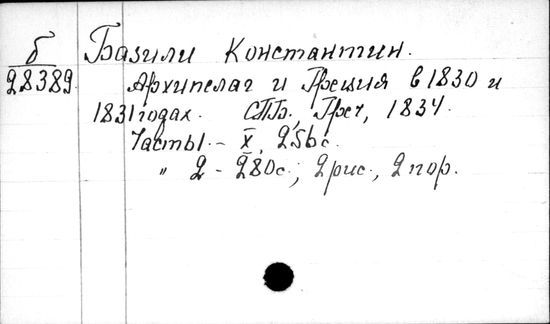 б
28389
Базили Константин.
Архипелаг и Греция в 1830 и
1831 годах. СПБ., Греч, 1834.
Часть 1 - X, 256с.
" 2 - 280с.; 2 рис., 2 пор.